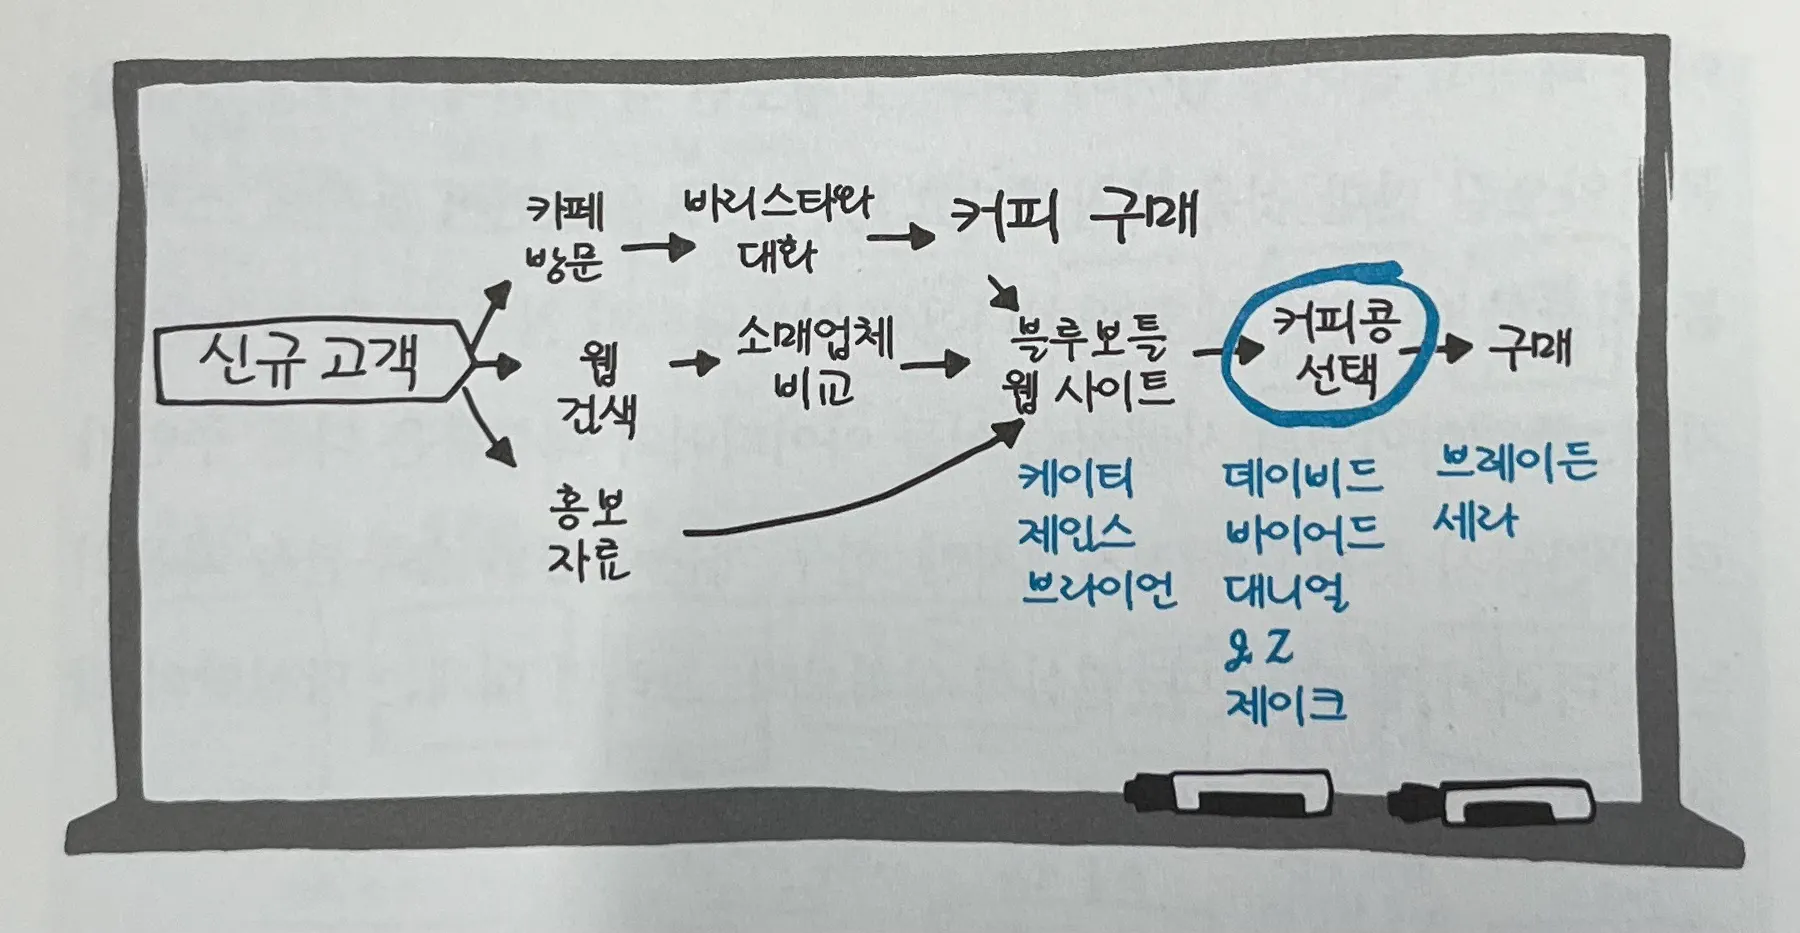 카페
방문
바리스타와
대화
커피 구매
신규 고객
웹
검색
소매업체
비교
블루보틀
웹 사이트
커피콩
선택
구매
홍보
자료
케이티
제인스
브라이언
데이비드
바이어드
대니얼
JZ
제이크
브레이든
세라